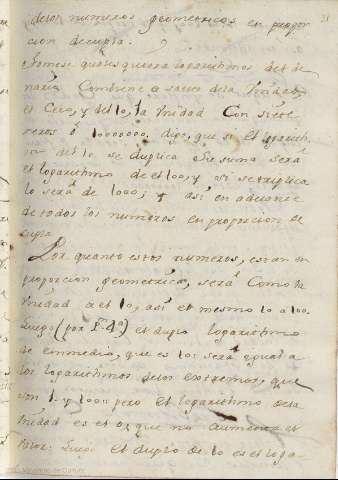 delos numeros geometricos en propor
cion decupla.
Tomese qualesquiera logarithmos del de
naria Combiene a saver dela Vnidad
el Cero, y del 10, la Vnidad Con siete
zeros ô 10000000, digo, que si el logarith
mo del 10 se duplica Su suma será
el logarithmo de el 100, y si se triplica
lo será de 1000, y así en adelante
de todos los numeros en proporcion de
cupla.
Por quanto estos numeros, estan en
proporcion geometrica, será Como la
Vnidad a el 10, asi el mesmo 10 a 100.
Luego (por 4ª) el duplo logarithmo
de enmedio, que es 10 será ygual a
los logarithmos delos extremos, que
son 1. y 100: pero el logarithmo dela
Vnidad es el 0, que no aumenta el
Valor: Luego el duplo de 10 es el loga
31